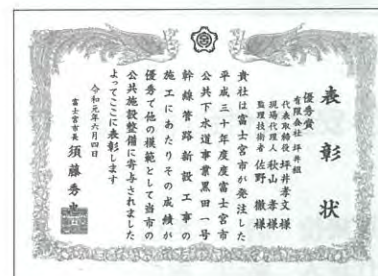 表彰状
優秀賞
有限会社 坪井組
代表取締役 坪井孝文様
現場代理人 秋山 孝様
監理技術者 佐野 徹様
貴社は富士宮市が発注した
平成三十年度富士宮市
公共下水道事業黒田一号
幹線管路新設工事の
施工にあたりその成績が
優秀で他の模範として当市の
公共施設整備に寄与されました
よってここに表彰します
令和元年六月四日
富士宮市長 須藤秀忠